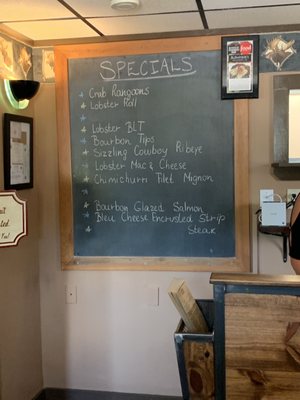 SPECIALS
Crab Rangoons
Lobster Roll
Lobster BLT
Bourbon Tips
Sizzling Cowboy Ribeye
Lobster Mac & Cheese
Chimichurri Filet Mignon
Bourbon Glazed Salmon
Bleu Cheese Encrusted Strip
Steak